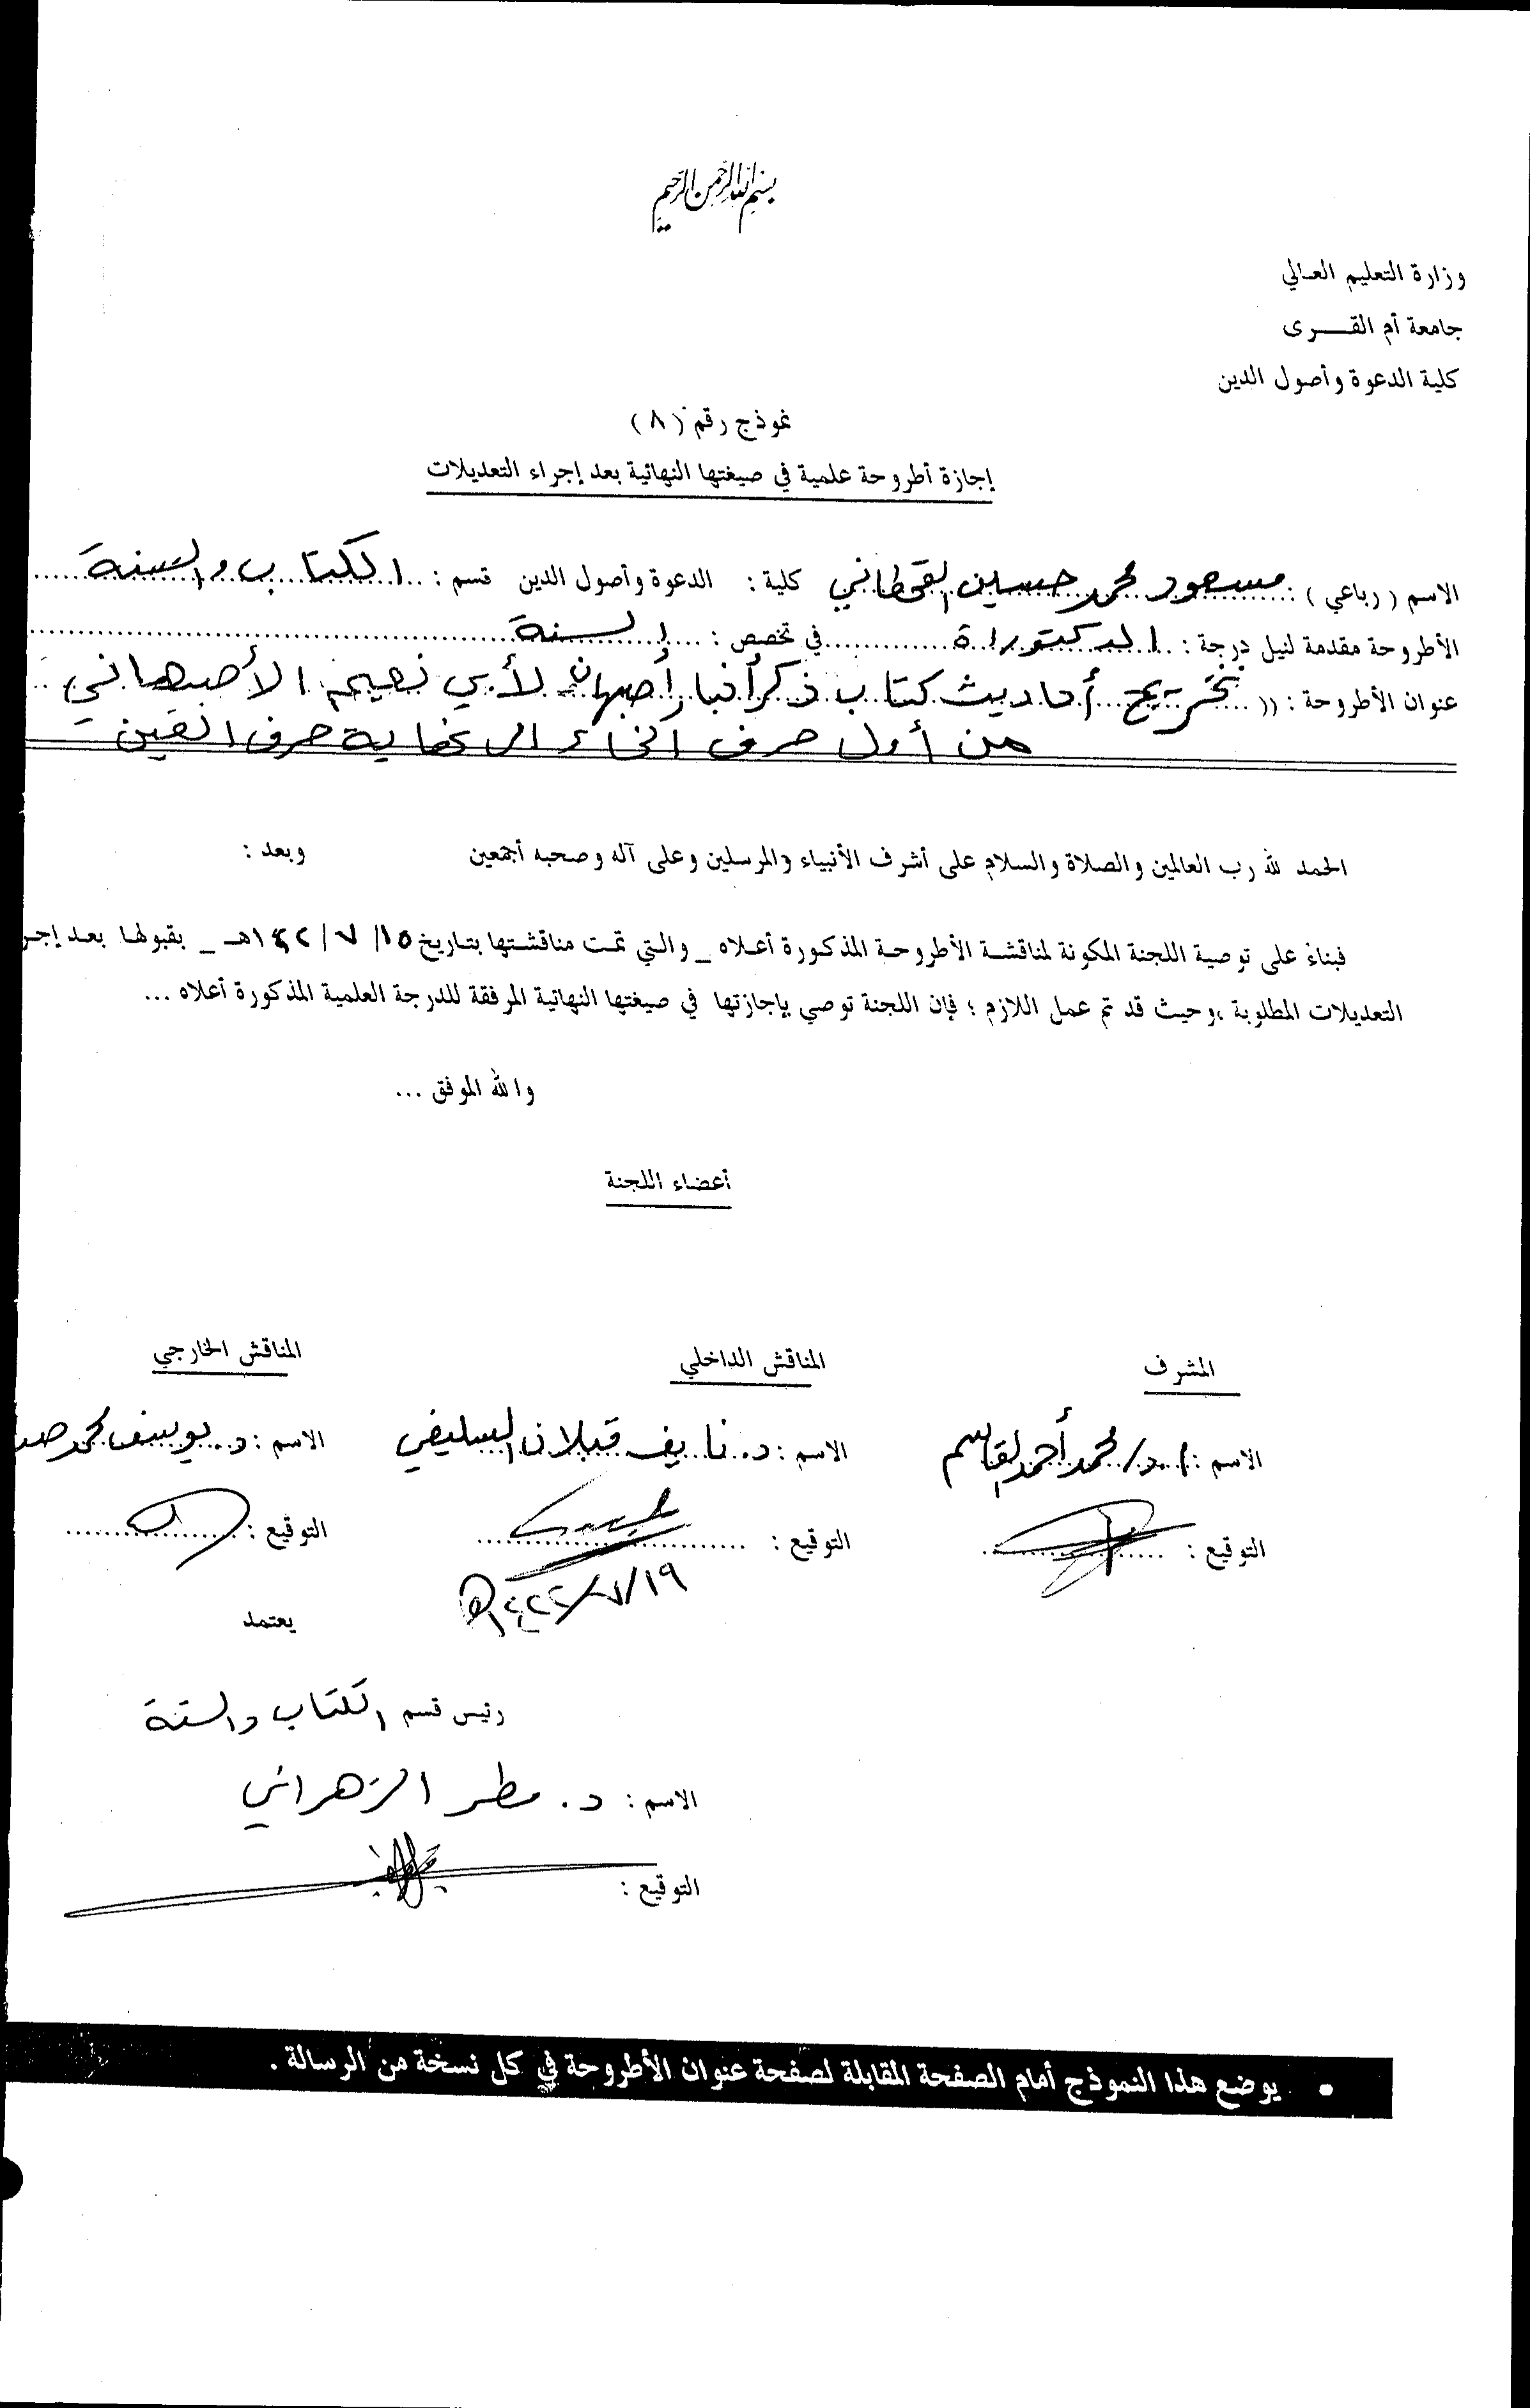 بسم الله الرحمن الرحيم
وزارة التعليم العالي
جامعة أم القـــرى
كلية الدعوة وأصول الدين
نموذج رقم (٨)
إجازة أطروحة علمية في صيغتها النهائية بعد إجراء التعديلات
الاسم (رباعي) : مسعود محمد حسين القحطاني كلية : الدعوة وأصول الدين قسم : الكتاب والسنة
الأطروحة مقدمة لنيل درجة : الدكتوراة في تخصص : السنة
عنوان الأطروحة : (( تخريج أحاديث كتاب ذكر أخبار أصبهان لأبي نعيم الأصبهاني
من أول حرف الخاء إلى نهاية حرف العين
الحمد لله رب العالمين والصلاة والسلام على أشرف الأنبياء والمرسلين وعلى آله وصحبه أجمعين وبعد :
فبناءً على توصية اللجنة المكونة لمناقشة الأطروحة المذكورة أعلاه _ والتي تمت مناقشتها بتاريخ ١٥/ ٧ /١٤٢٢هـ _ بقبولها بعد إجر
التعديلات المطلوبة ،وحيث قد تم عمل اللازم ؛ فإن اللجنة توصي بإجازتها في صيغتها النهائية المرفقة للدرجة العلمية المذكورة أعلاه ...
والله الموفق ...
أعضاء اللجنة
المشرف المناقش الداخلي المناقش الخارجي
الاسم : ا.د/ محمد أحمد القاسم الاسم : د. نايف قبلان السليفي الاسم : د. يوسف محمد صد
التوقيع : التوقيع : التوقيع :
١٩/٧/١٤٢٢هـ
يعتمد
رئيس قسم الكتاب والسنة
الاسم : د. مطر الزهراني
التوقيع :
• يوضع هذا النموذج أمام الصفحة المقابلة لصفحة عنوان الأطروحة في كل نسخة من الرسالة .